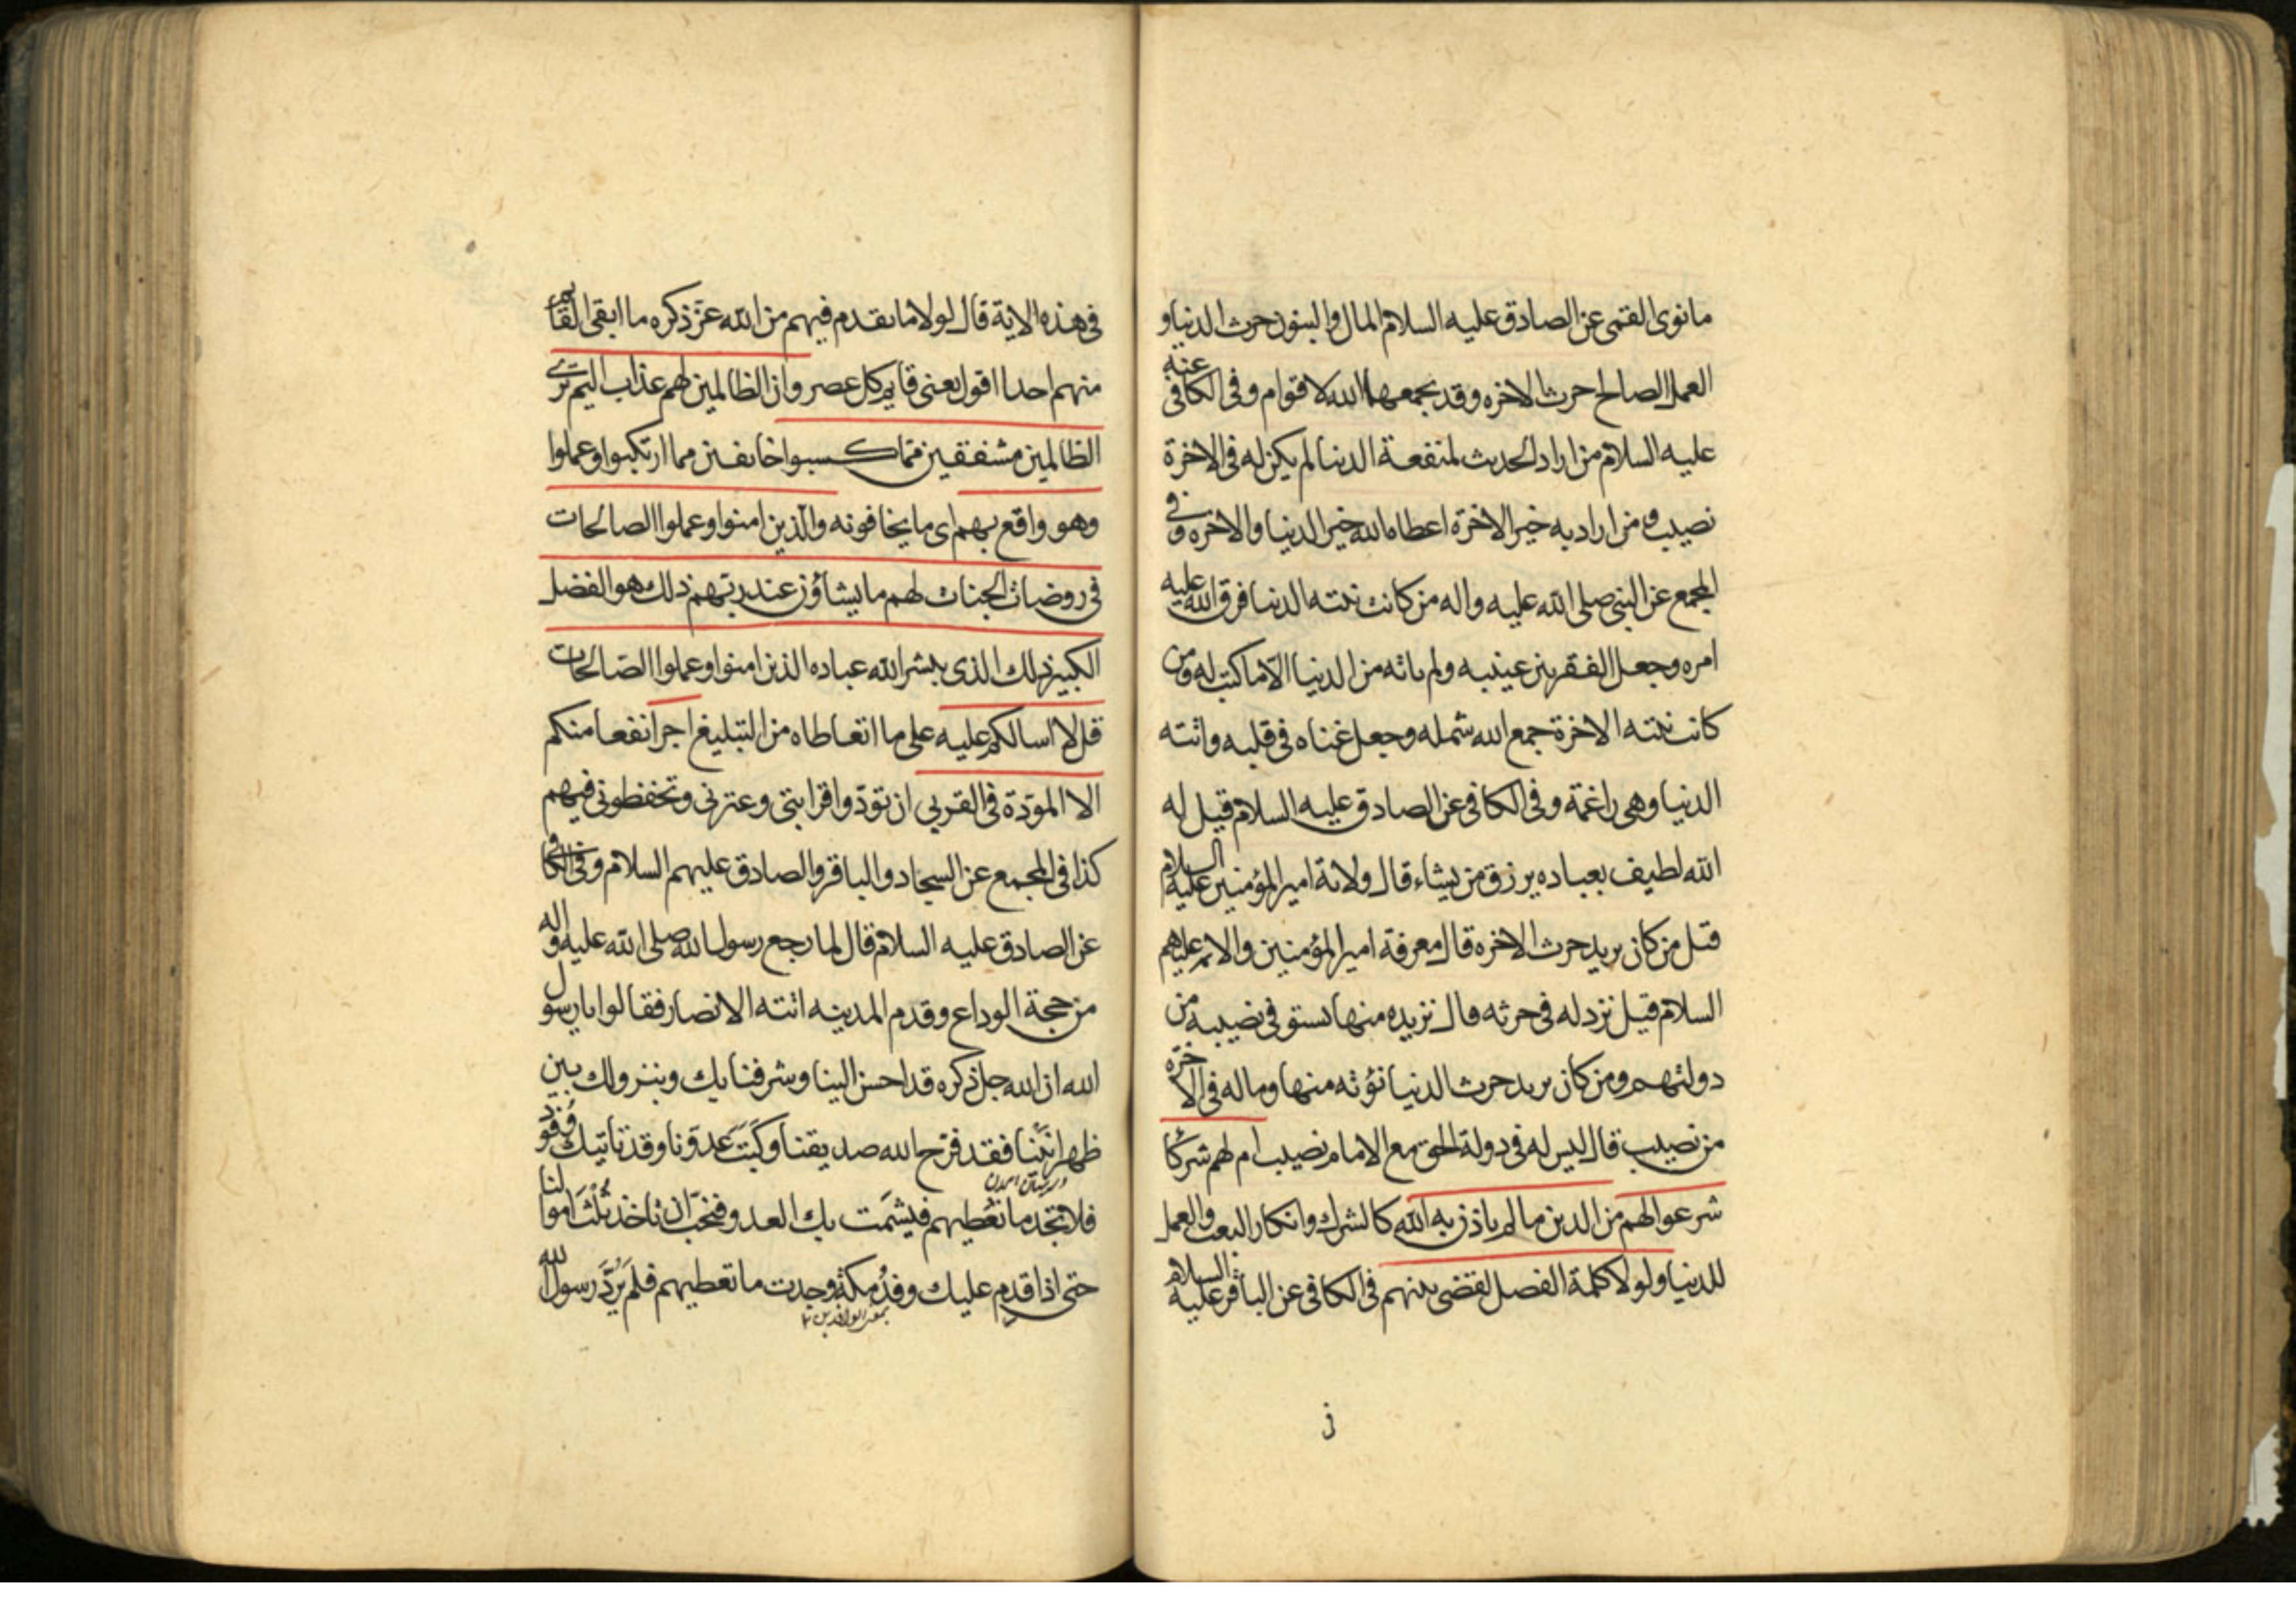 ما نوى القمى عن الصادق عليه السلام المال والبنون حرث الدنيا و
العمل الصالح حرث الاخره وقد يجمعهما الله لاقوام وفى الكافى عنه
عليه السلام من اراد الحديث لمنفعة الدنيا لم يكن له فى الاخرة
نصيب ومن اراد به خير الاخرة اعطاه الله خير الدنيا والاخره وفى
المجمع عن النبى صلى الله عليه واله من كانت نيته الدنيا فرق الله عليه
امره وجعل الفقر بين عينيه ولم ياته من الدنيا الا ما كتب له ومن
كانت نيته الاخرة جمع الله شمله وجعل غناه فى قلبه واتته
الدنيا وهى راغمة وفى الكافى عن الصادق عليه السلام قيل له
الله لطيف بعباده يرزق من يشاء قال ولاية امير المؤمنين عليه السلام
قيل من كان يريد حرث الاخره قال معرفة امير المؤمنين والائمة عليهم
السلام قيل نزد له فى حرثه قال نزيده منها يستوفى نصيبه من
دولتهم ومن كان يريد حرث الدنيا نؤته منها وماله فى الاخرة
من نصيب قال ليس له فى دولة الحق مع الامام نصيب ام لهم شركا
شرعوا لهم من الدين ما لم ياذن به الله كالشرك وانكار البعث والعمل
للدنيا ولولا كلمة الفصل لقضى بينهم فى الكافى عن الباقر عليه السلام
فى هذه الاية قال لولا ما تقدم فيهم من الله عز ذكره ما ابقى القائم
منهم احدا اقول يعنى قايم كل عصر وان الظالمين لهم عذاب اليم ترى
الظالمين مشفقين مما كسبوا خائفين مما ارتكبوا وعملوا
وهو واقع بهم اى ما يخافونه والذين امنوا وعملوا الصالحات
فى روضات الجنات لهم ما يشاؤن عند ربهم ذلك هو الفضل
الكبير ذلك الذى يبشر الله عباده الذين امنوا وعملوا الصالحات
قل لا اسالكم عليه على ما اتعاطاه من التبليغ اجرا نفعا منكم
الا المودة فى القربى ان تودوا قرابتى وعترتى وتحفظونى فيهم
كذا فى المجمع عن السجاد والباقر والصادق عليهم السلام وفى الكافى
عن الصادق عليه السلام قال لما رجع رسول الله صلى الله عليه واله
من حجة الوداع وقدم المدينه اتته الانصار فقالوا يا رسول
الله ان الله جل ذكره قد احسن الينا وشرفنا بك وبنزولك بين
ظهرانينا فقد فرح الله صديقنا وكبت عدونا وقد تاتيك وفود
فلا تجد ما تعطيهم فيشمت بك العدو فنحب ان تاخذ ثلث اموالنا
حتى اذا قدم عليك وفد مكة وجدت ما تعطيهم فلم يرد رسول الله